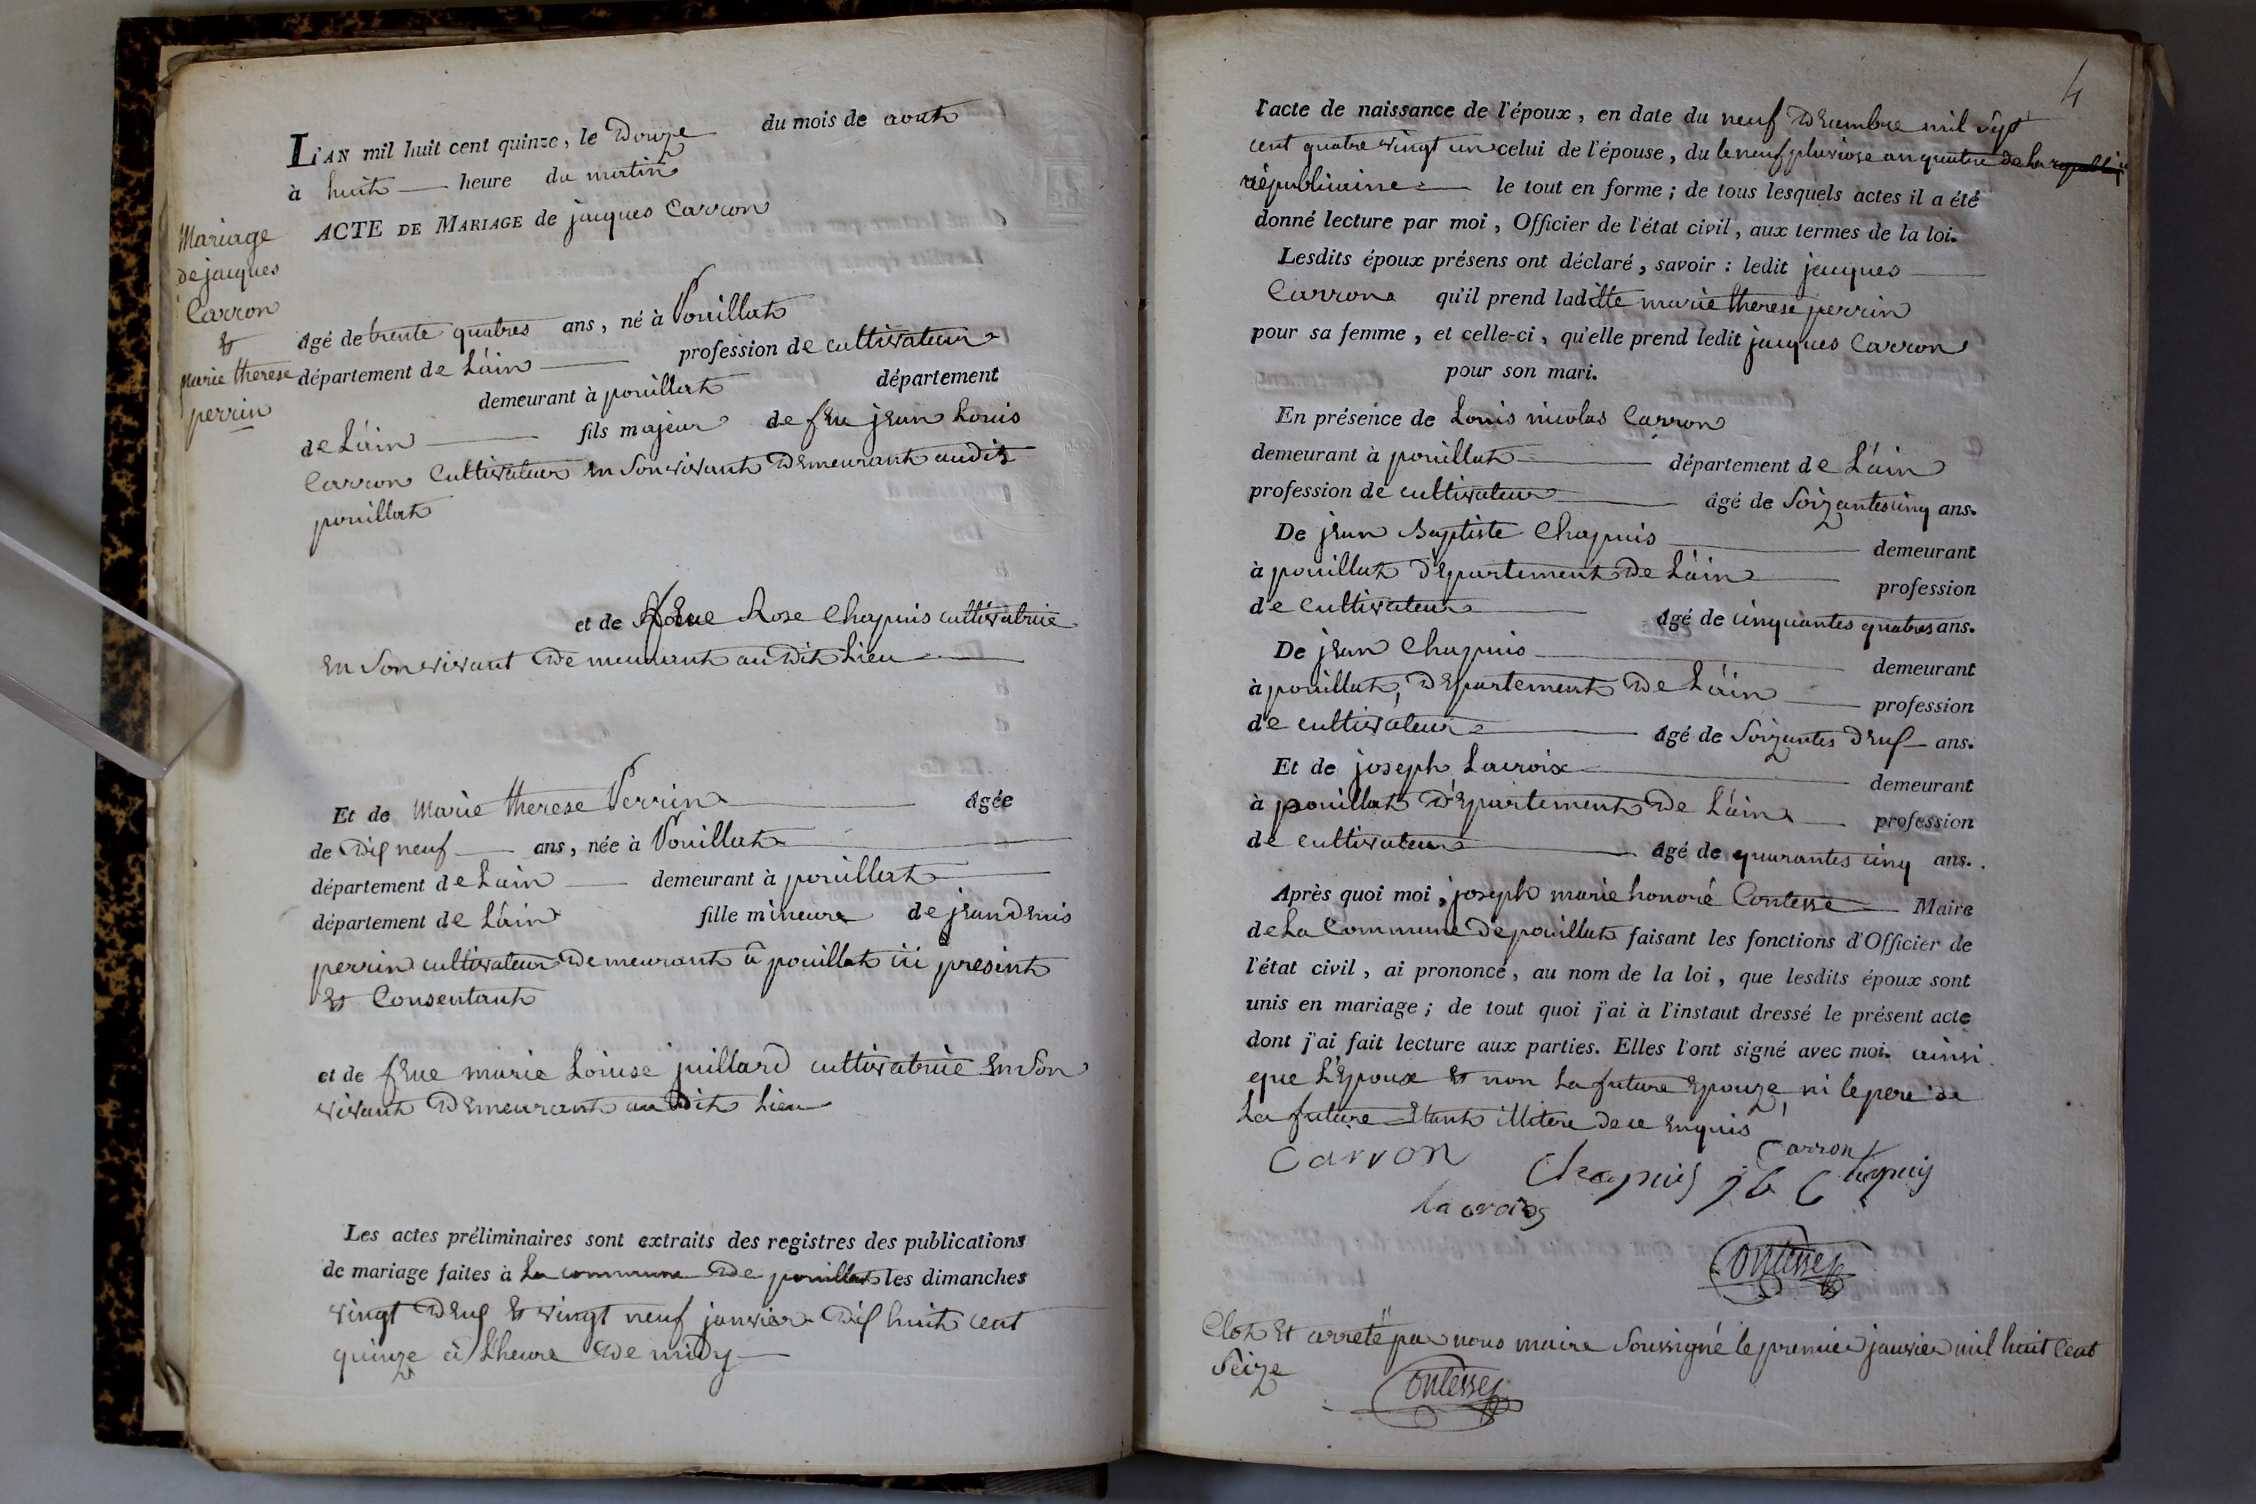 L'AN mil huit cent quinze, le Douze du mois de aout
à huit heure du matin
ACTE DE MARIAGE de jacques Carron
Mariage
de jacques
Carron
et
marie therese
perrin
âgé de trente quatres ans, né à Pouillat
département de L'ain profession de cultivateur
demeurant à pouillat département
de L'ain fils majeur de feu jean Louis
Carron Cultivateur en Son vivant Demeurant audit
pouillat
et de feue Rose Chapuis cultivatrice
en Son vivant Demeurant au Dit Lieu
Et de Marie therese Perrin âgée
de Dix neuf ans, née à Pouillat
département de Lain demeurant à pouillat
département de L'ain fille mineure de jean Denis
perrin cultivateur Demeurant à pouillat ici present
et Consentant
et de feue marie Louise juillard cultivatrice en Son
vivant Demeurant au Dit Lieu
Les actes préliminaires sont extraits des registres des publications
de mariage faites à La commune De pouillat les dimanches
vingt Deux et vingt neuf janvier Dix huit cent
quinze à L'heure De midy
4
l'acte de naissance de l'époux, en date du neuf Decembre mil Sept
cent quatre vingt un celui de l'épouse, du le neuf pluviose an quatre de La republiq
républicaine le tout en forme ; de tous lesquels actes il a été
donné lecture par moi, Officier de l'état civil, aux termes de la loi.
Lesdits époux présens ont déclaré, savoir : ledit jacques
Carron qu'il prend laditte marie therese perrin
pour sa femme, et celle-ci, qu'elle prend ledit jacques Carron
pour son mari.
En présence de Louis nicolas Carron
demeurant à pouillat département de L'ain
profession de cultivateur âgé de Soizantes cinq ans.
De jean Baptiste Chapuis demeurant
à pouillat Département De L'ain profession
de cultivateur âgé de cinquantes quatres ans.
De jean Chapuis demeurant
à pouillat, Département De L'ain profession
de cultivateur âgé de Soizantes Deux ans.
Et de joseph Lacroix demeurant
à pouillat Département De L'ain profession
de cultivateur âgé de quarantes cinq ans.
Après quoi moi, joseph marie honoré Contesse Maire
de La Commune De pouillat faisant les fonctions d'Officier de
l'état civil, ai prononcé, au nom de la loi, que lesdits époux sont
unis en mariage ; de tout quoi j'ai à l'instaut dressé le présent acte
dont j'ai fait lecture aux parties. Elles l'ont signé avec moi. ainsi
que L'Epoux et non La future Epouze, ni le pere de
La future Etant illitere de ce Enquis
Carron Carron
Chapuis J b Chapuis
la croix
Contesse
Clot Et arreté par nous maire Soussigné le premier janvier mil huit Cent
Seize
Contesse